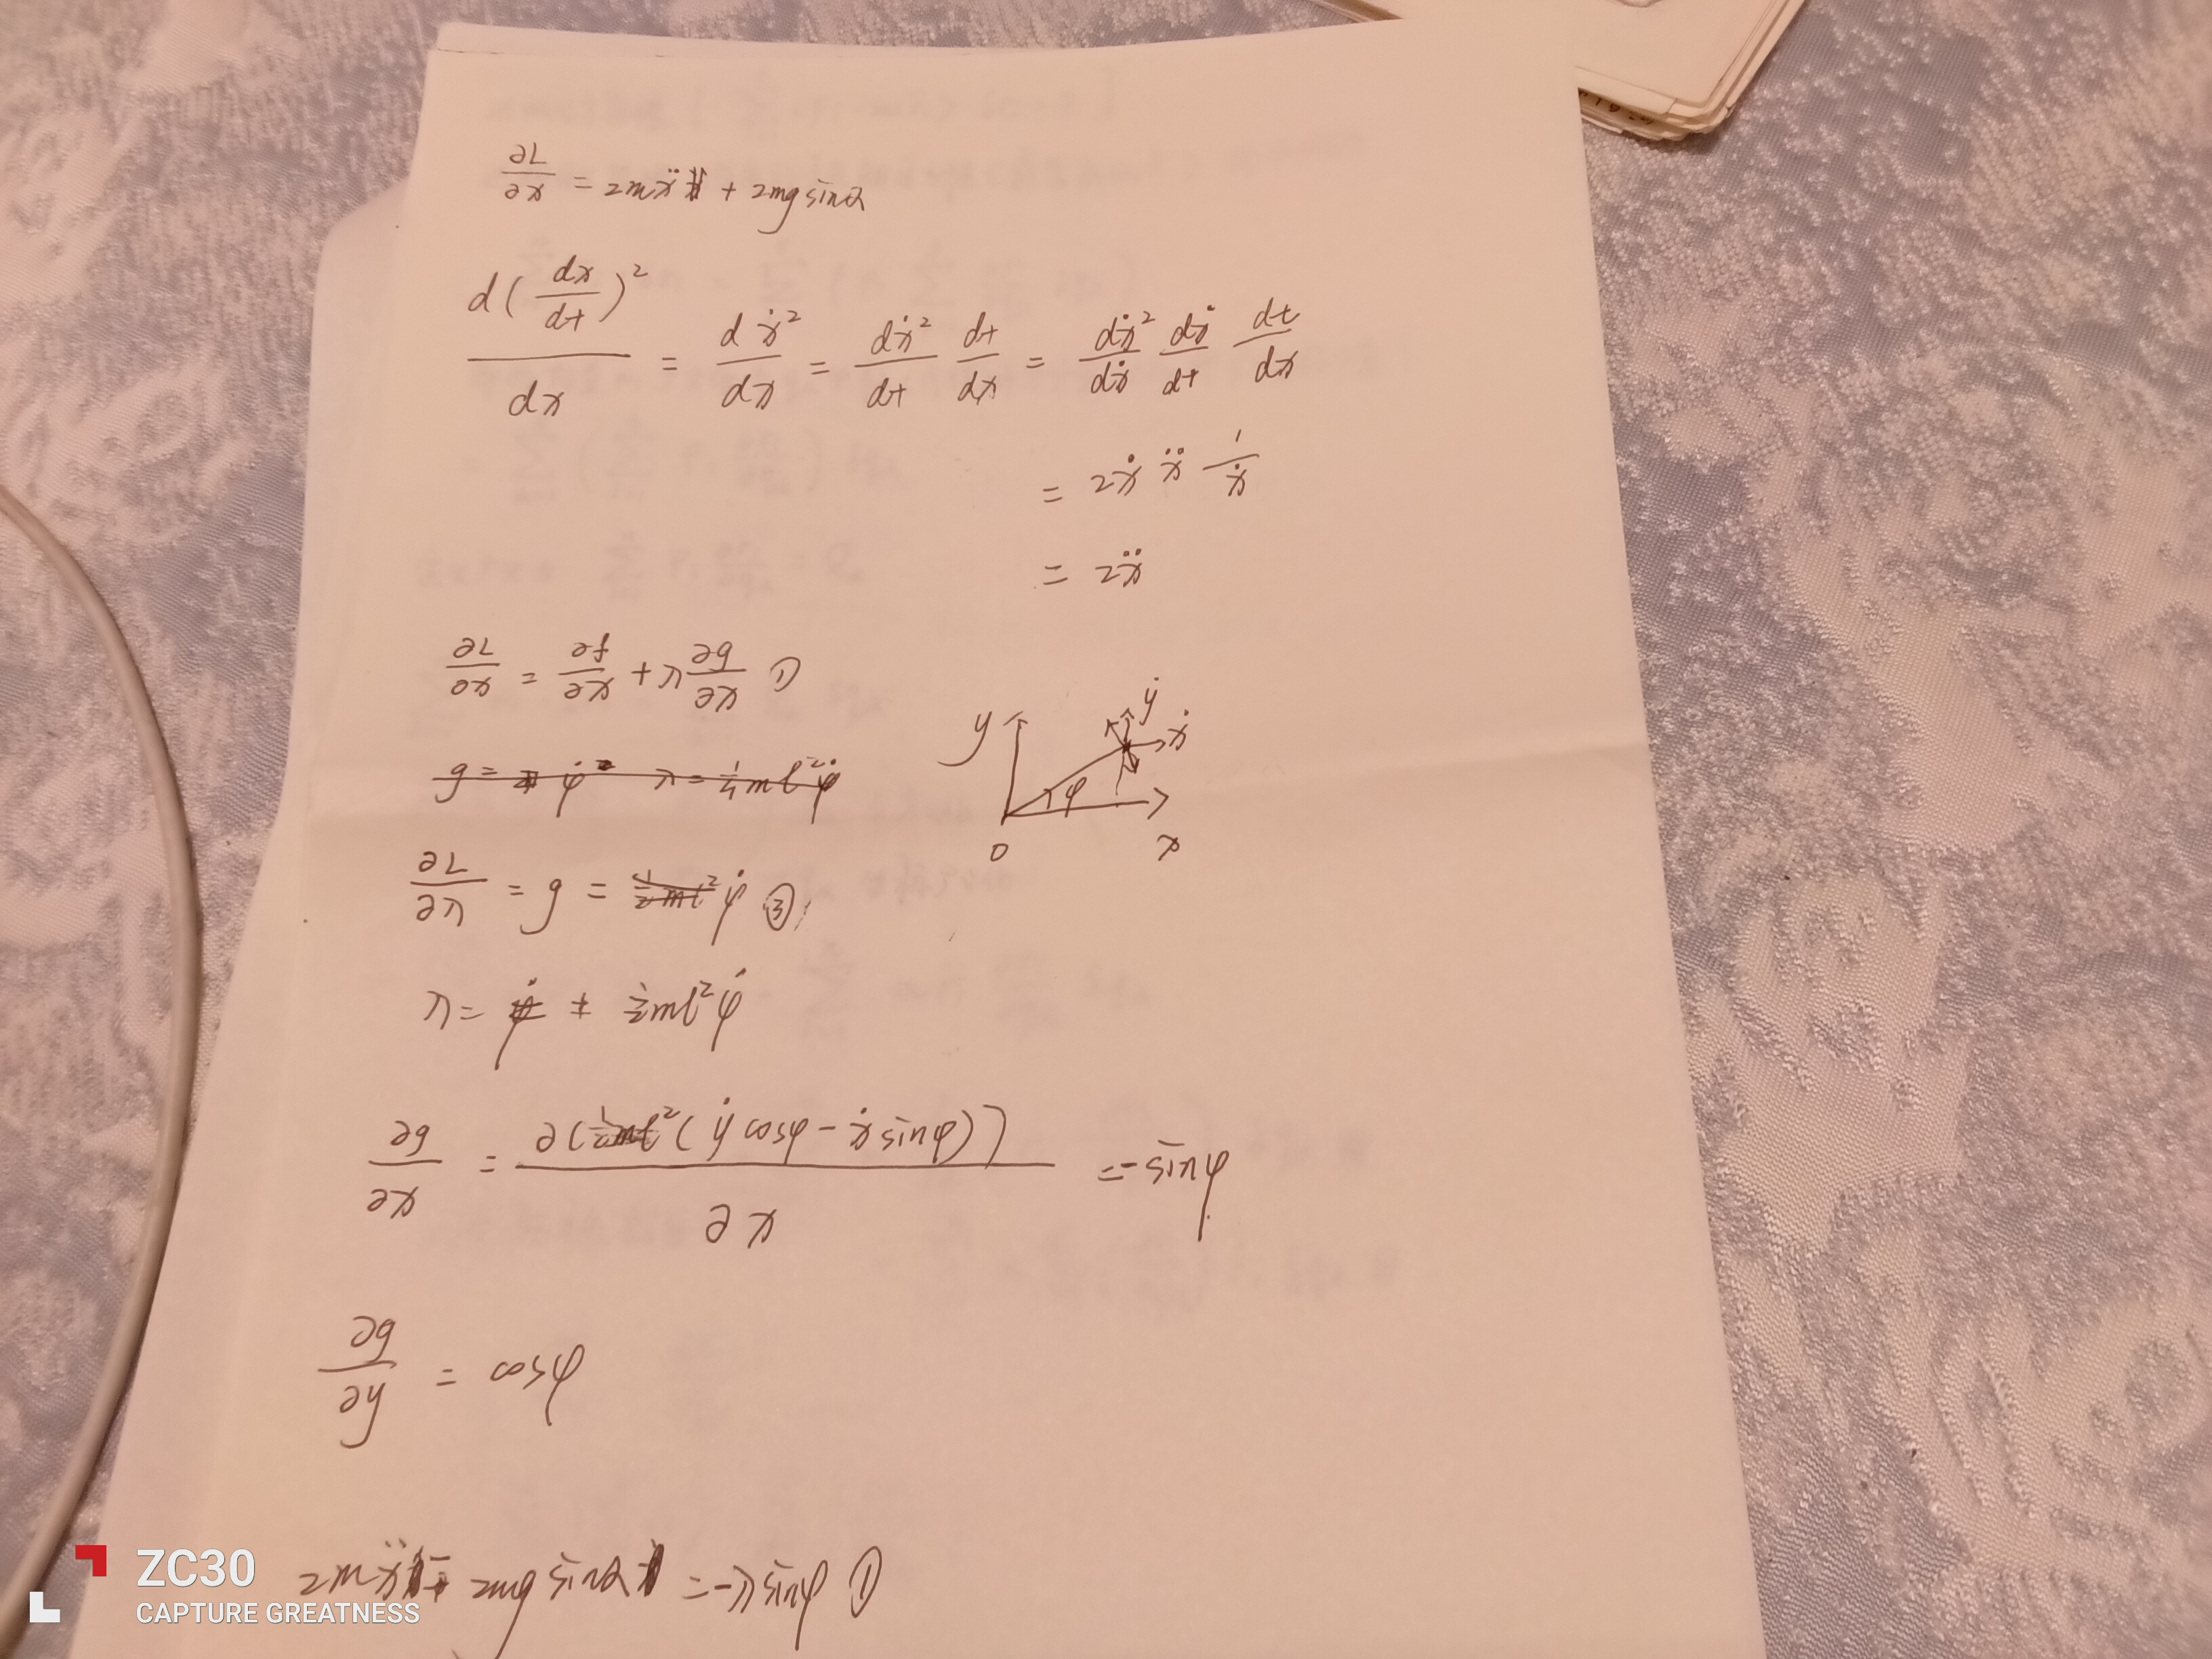 ∂L/∂x = 2mẍ + 2mg sinα
d(dx/dt)²/dx = dẋ²/dx = dẋ²/dt dt/dx = dẋ²/dẋ dẋ/dt dt/dx
= 2ẋ ẍ 1/ẋ
= 2ẍ
∂L/∂x = ∂f/∂x + λ ∂g/∂x ①
y ẏ ẋ φ 0 x
∂L/∂λ = g = φ̇ ③
λ = ½ml²φ̇
∂g/∂x = ∂((ẏ cosφ - ẋ sinφ))/∂x = -sinφ
∂g/∂y = cosφ
2mẍ 2mg sinα = -λ sinφ ①
ZC30
CAPTURE GREATNESS